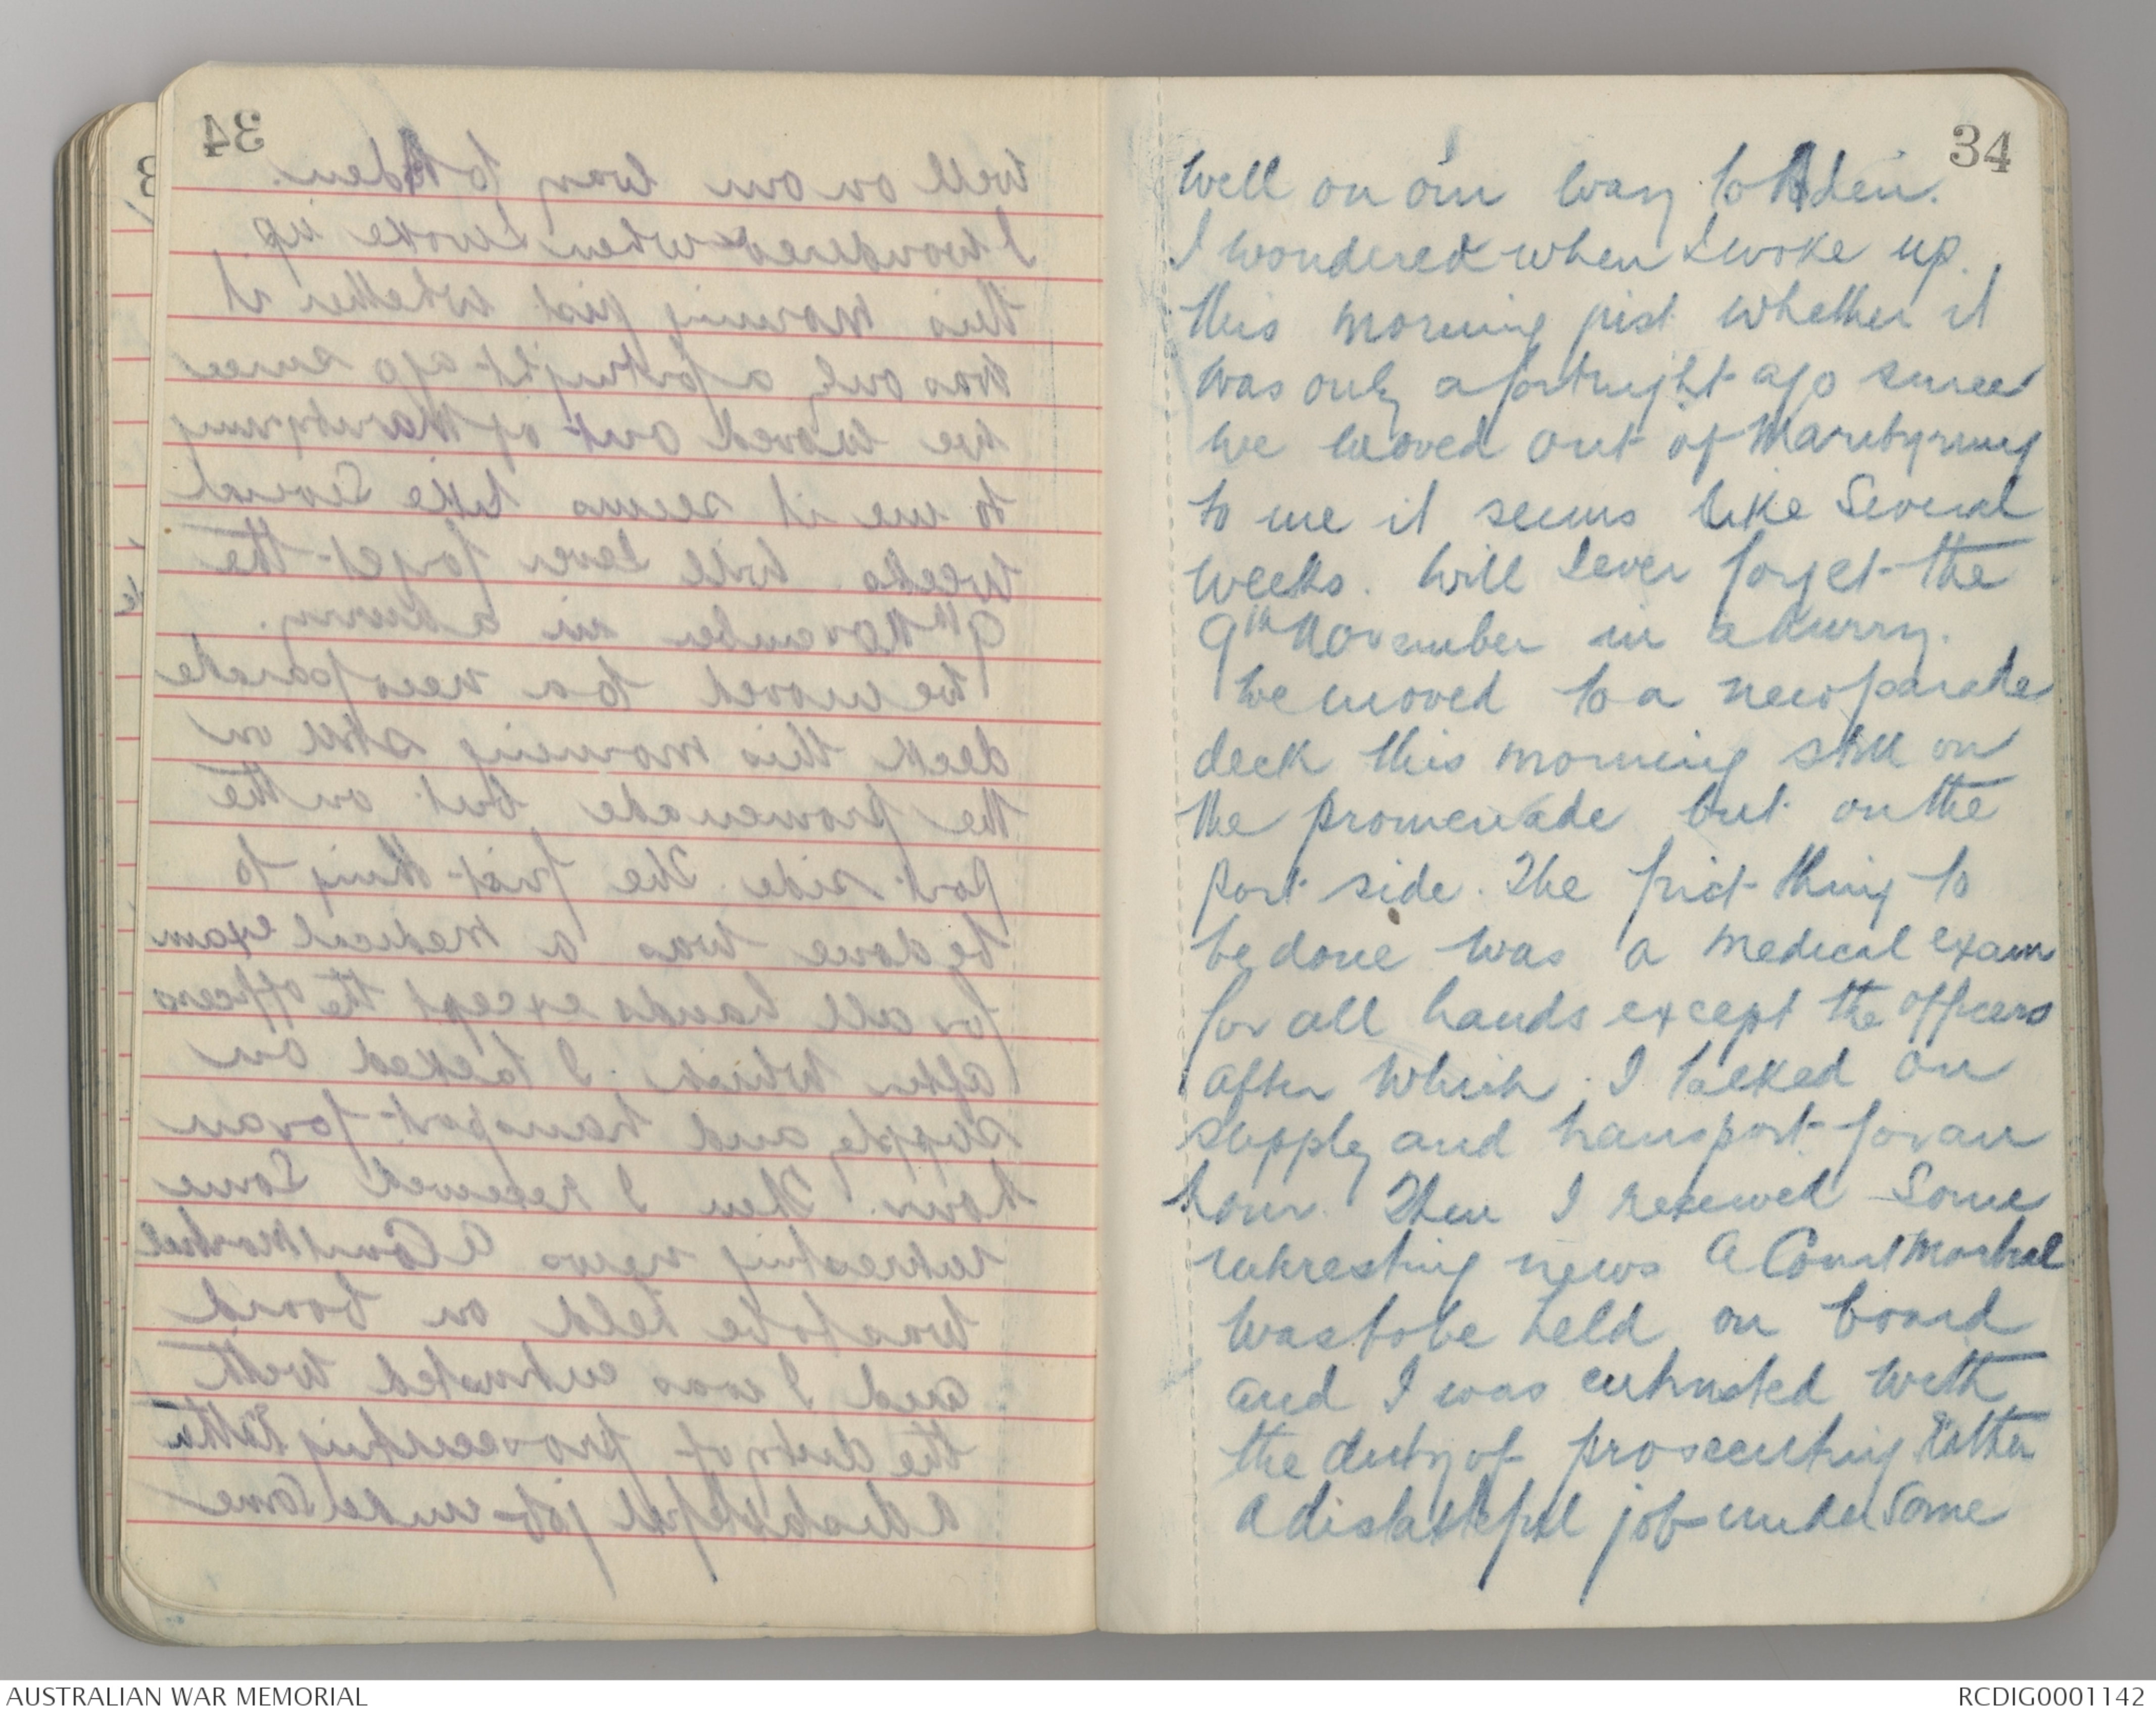 34
well on our way to Aden.
I wondered when I woke up
this morning just whether it
was only a fortnight ago since
we moved out of Maribyrnong
to me it seems like several
weeks. Will I ever forget the
9th November in a hurry.
We moved to a new parade
deck this morning still on
the promenade but on the
port side. The first thing to
be done was a medical exam
for all hands except the officers
after which I talked on
supply and transport for an
hour. Then I received some
interesting news A Court Martial
was to be held on board
and I was entrusted with
the duty of prosecuting rather
a distasteful job under some
AUSTRALIAN WAR MEMORIAL
RCDIG0001142